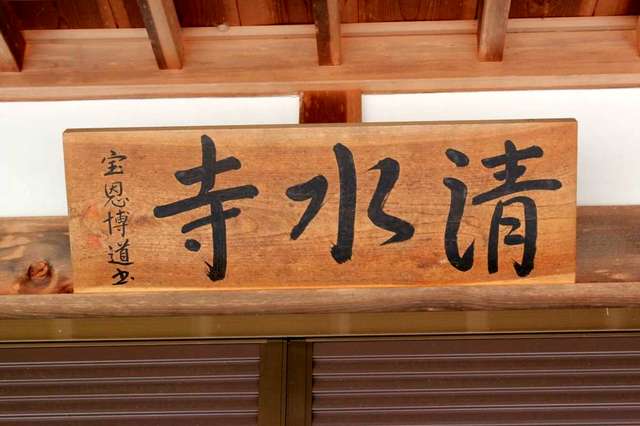 清水寺
宝恩博道書